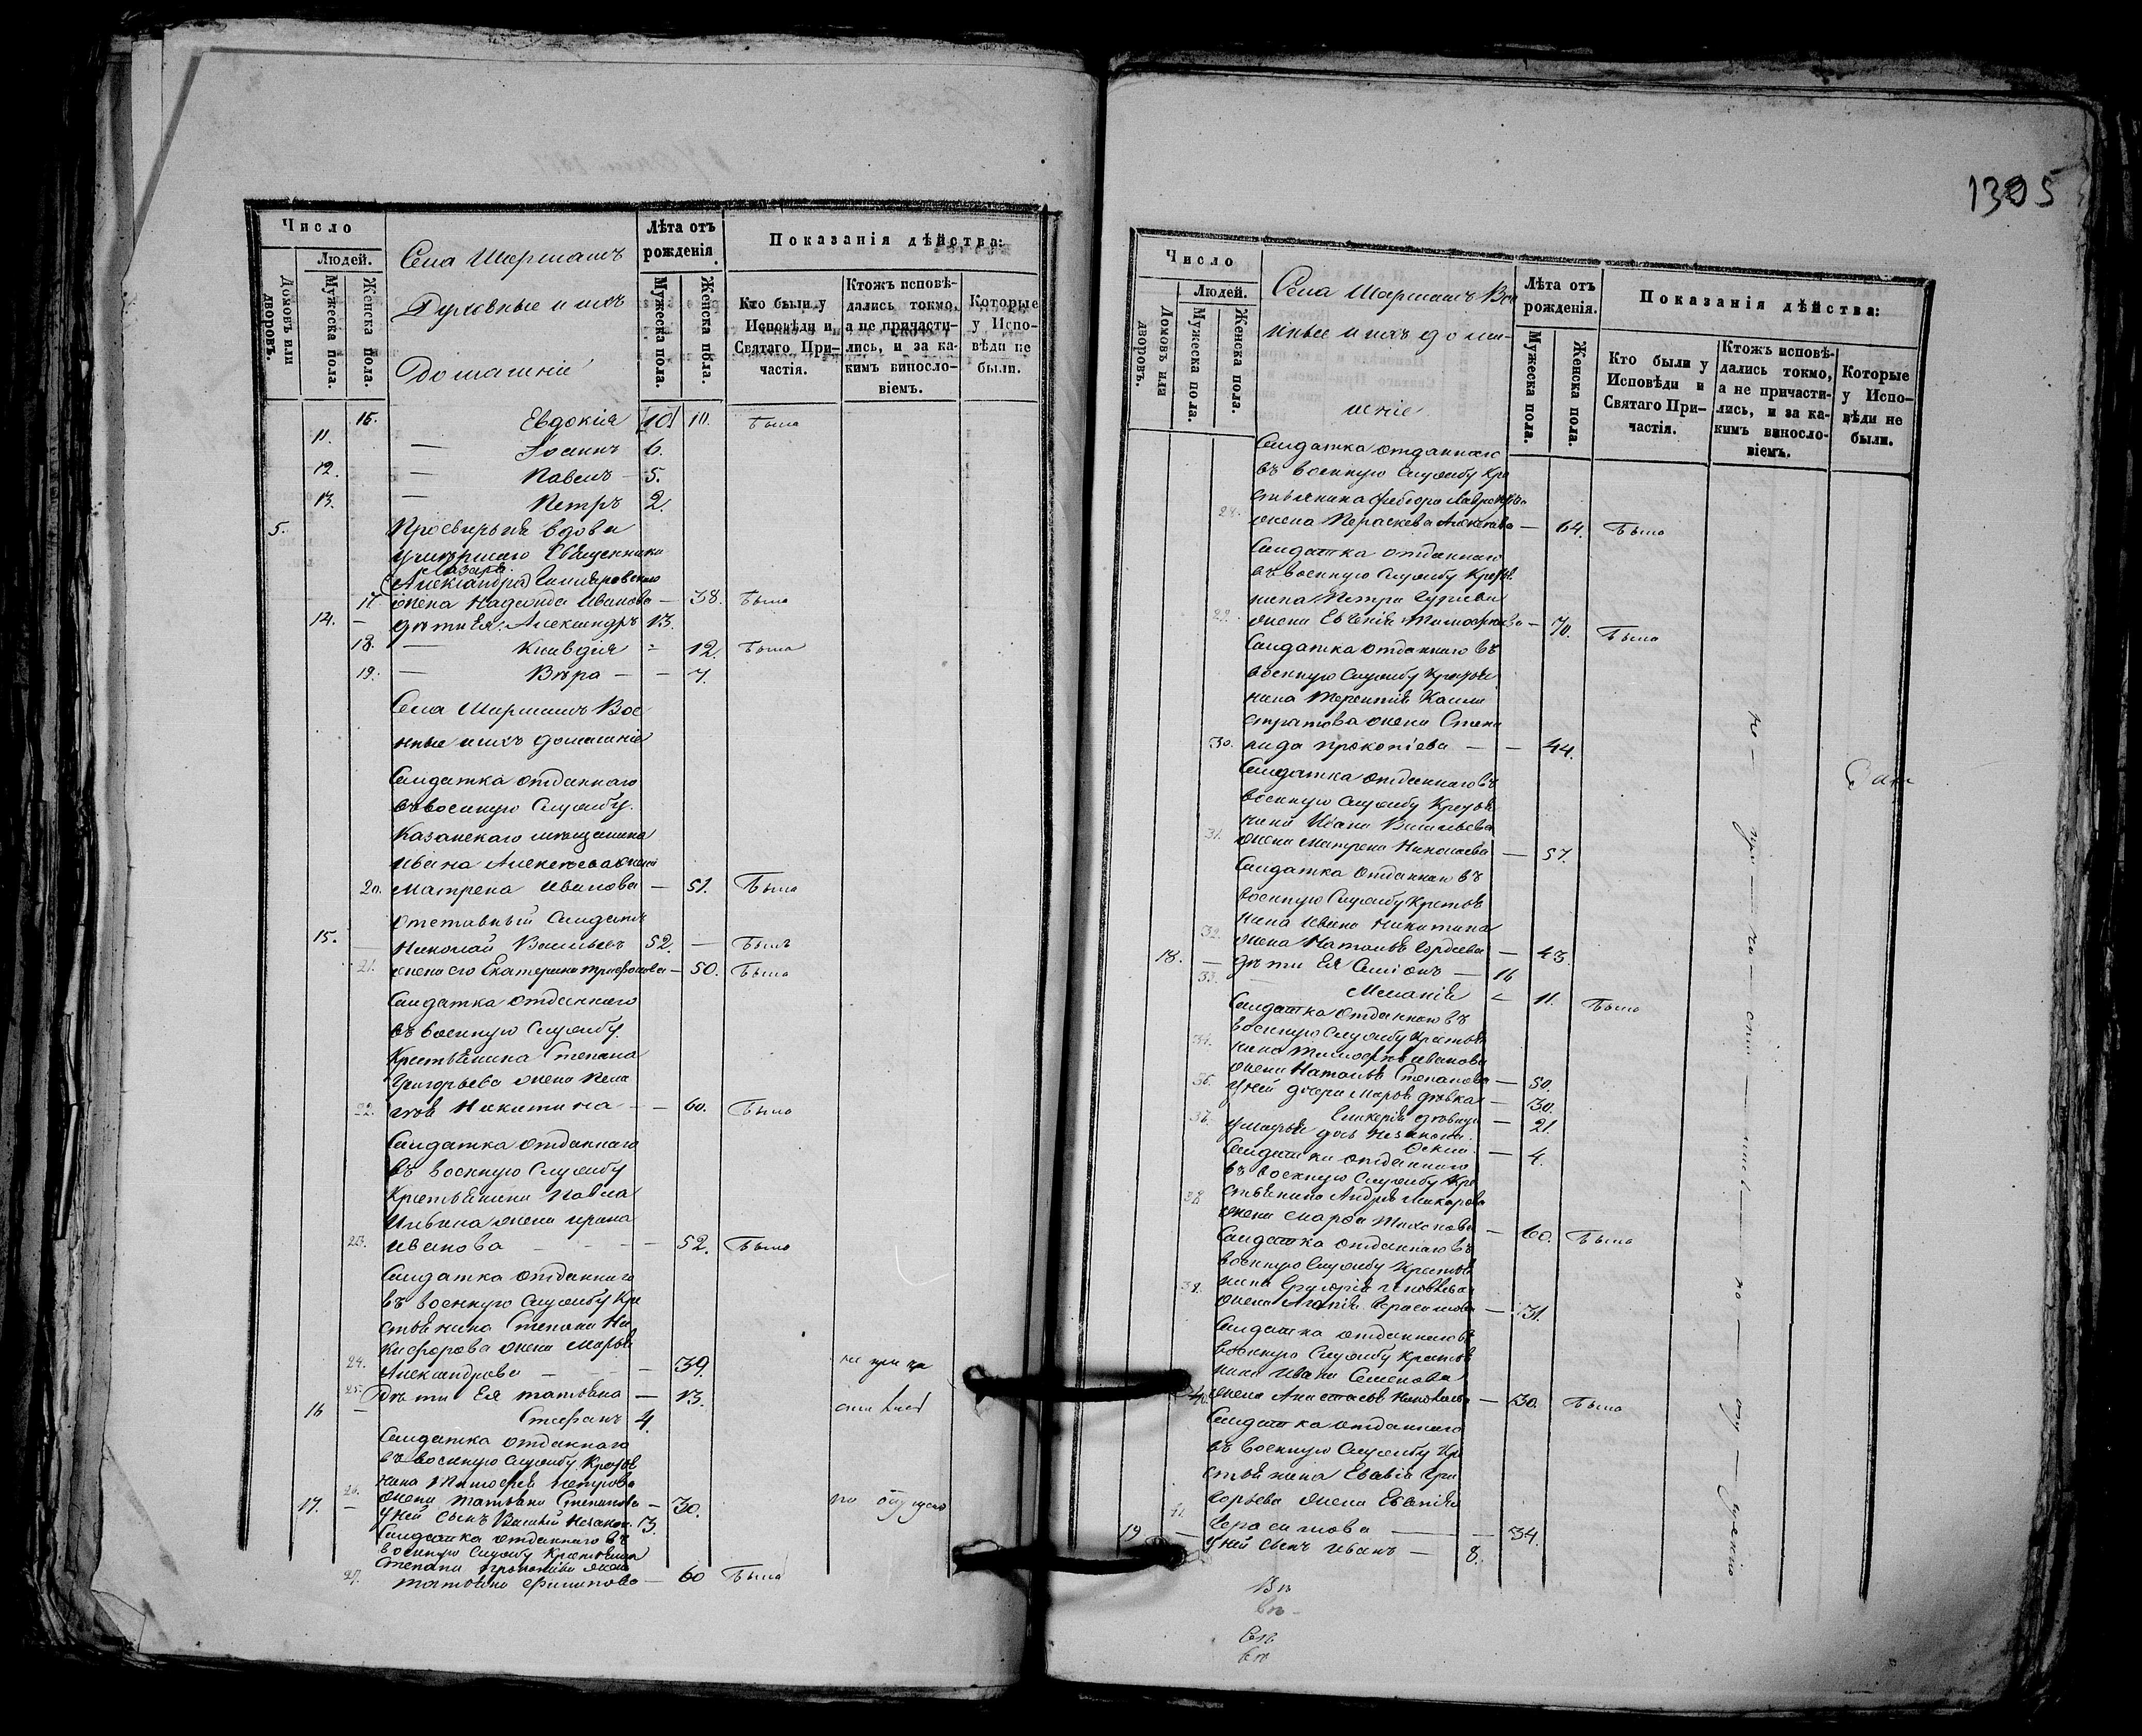 Число
Людей.
Домовъ или дворовъ.
Мужеска пола.
Женска пола.
Села Шармашъ
Духовные и ихъ
Домашніе
Лѣта отъ рожденія
Мужеска пола.
Женска пола.
Показанія дѣйства:
Кто были у Исповѣди и Святаго Причастія.
Ктожъ исповѣ-
дались токмо,
а не причасти-
лись, и за ка-
кимъ виносло-
віемъ.
Которые
у Испо-
вѣди не
были.
16. Евдокія 10 10. Была
11. — Іоаннъ 6.
12. — Павелъ — 5.
13. — Петръ 2.
5. Просвирьня вдова
умершаго Священника
Лазаря
Александра
17. жена Надежда Иванова — 38. Была
14. — дѣти Ея: Александръ 13.
18. — Клавдія - 12. Была
19. — Вѣра — — 7.
Села Шармашъ Вое
нные ихъ домашніе
Солдатка отданнаго
въ военную Службу
Казанскаго мѣщанина
Ивана Алексѣева жена
20. Матрена Иванова — 51. Была
Отставный Солдатъ
15. — Николай Васильевъ 52. — Былъ
21. жена его Екатерина Трифонова — 50. Была
Солдатка отданнаго
въ военную Службу
Крестьянина Степана
Григорьева жена Пела
22. гея Никитина — — 60. Была
Солдатка отданнаго
въ военную Службу
Крестьянина Павла
Ильина жена Ирина
23. Иванова — — — 52. Была
Солдатка отданнаго
въ военную Службу Кре
стьянина Степана Ни
кифорова жена Марья
24. Александрова — — 39. не при ча
25. Дѣти Ея Татьяна — 13.
16 — Стефанъ 4.
Солдатка отданнаго
въ военную Службу Крестья
нина Тимофея Петрова
26. жена Татьяна Степанова — 30. по
17. — У ней сынъ Василій Незакон. 3.
Солдатка отданнаго въ
военную Службу Крестьянина
Степана Прокопьева жена
27. Татьяна Филипова — 60 Была
1305
Число
Людей.
Домовъ или дворовъ.
Мужеска пола.
Женска пола.
Села Шармашъ Вое
нные и ихъ дома-
шніе
Лѣта отъ
рожденія.
Мужеска пола.
Женска пола.
Показанія дѣйства:
Кто были у
Исповѣди и
Святаго При-
частія.
Ктожъ исповѣ-
дались токмо,
а не причасти-
лись, и за ка-
кимъ винosло-
віемъ.
Которые
у Испо-
вѣди не
были.
Солдатка отданнаго
въ военную Службу Кре
стьянина Феодора
28. жена Параскева — 64. Была
Солдатка отданнаго
въ военную Службу Крестья
нина Петра
29. жена Евгенія Тимофеева — 70. Была
Солдатка отданнаго въ
военную Службу Крестья
нина Терентія Кали
стратова жена Степа
30. нида Прокопіева — — 44.
Солдатка отданнаго въ
военную Службу Крестья
нина Ивана Васильева
31. жена Матрена Николаева — 57.
Солдатка отданнаго въ
военную Службу Крестья
нина Ивана Никитина
32. жена Наталья Гордѣева — 43.
18. — дѣти Ея Симіонъ — 16
33. Меланія - 11. Была
Солдатка отданнаго въ
военную Службу Крестья
нина Тимофея Иванова
34. жена Наталья Степанова — 50.
36. У ней дочери Марья дѣвка — 30.
Гликерія дѣвица — 21.
37. У Марьи дочь Незакона.
— 4.
Солдатка отданнаго
въ военную Службу Кре
стьянина Андрея Макарова
38 жена Марфа Тихонова — 60. Была
Солдатка отданнаго въ
военную Службу Крестья
нина Григорія Яковлева
39. жена Агапія Герасимова — 31.
Солдатка отданнаго въ
военную Службу Крестья
нина Ивана Семенова
40. жена Анастасья — 30. Была
Солдатка отданнаго
въ военную Службу Кре
стьянина Евсевія Гри
горьева жена Евгенія
41. Герасимова — — 34.
19 — У ней сынъ Иванъ — 8.